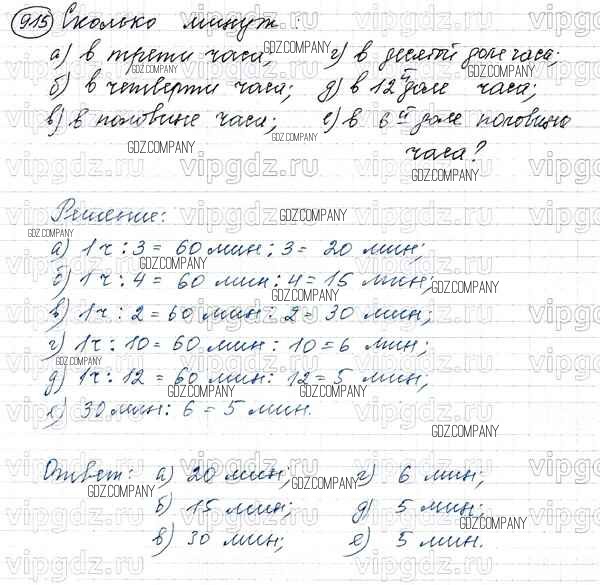 915 Сколько минут:
а) в трети часа; г) в десятой доле часа;
б) в четверти часа; д) в 12й доле часа;
в) в половине часа; е) в 6й доле половины
часа?
Решение:
а) 1 ч : 3 = 60 мин : 3 = 20 мин;
б) 1 ч : 4 = 60 мин : 4 = 15 мин;
в) 1 ч : 2 = 60 мин : 2 = 30 мин;
г) 1 ч : 10 = 60 мин : 10 = 6 мин;
д) 1 ч : 12 = 60 мин : 12 = 5 мин;
е) 30 мин : 6 = 5 мин.
Ответ: а) 20 мин; г) 6 мин;
б) 15 мин; д) 5 мин;
в) 30 мин; е) 5 мин.